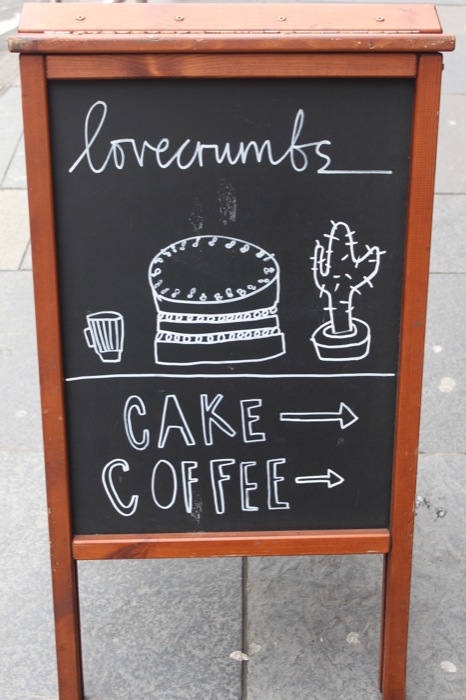 lovecrumbs
CAKE
COFFEE